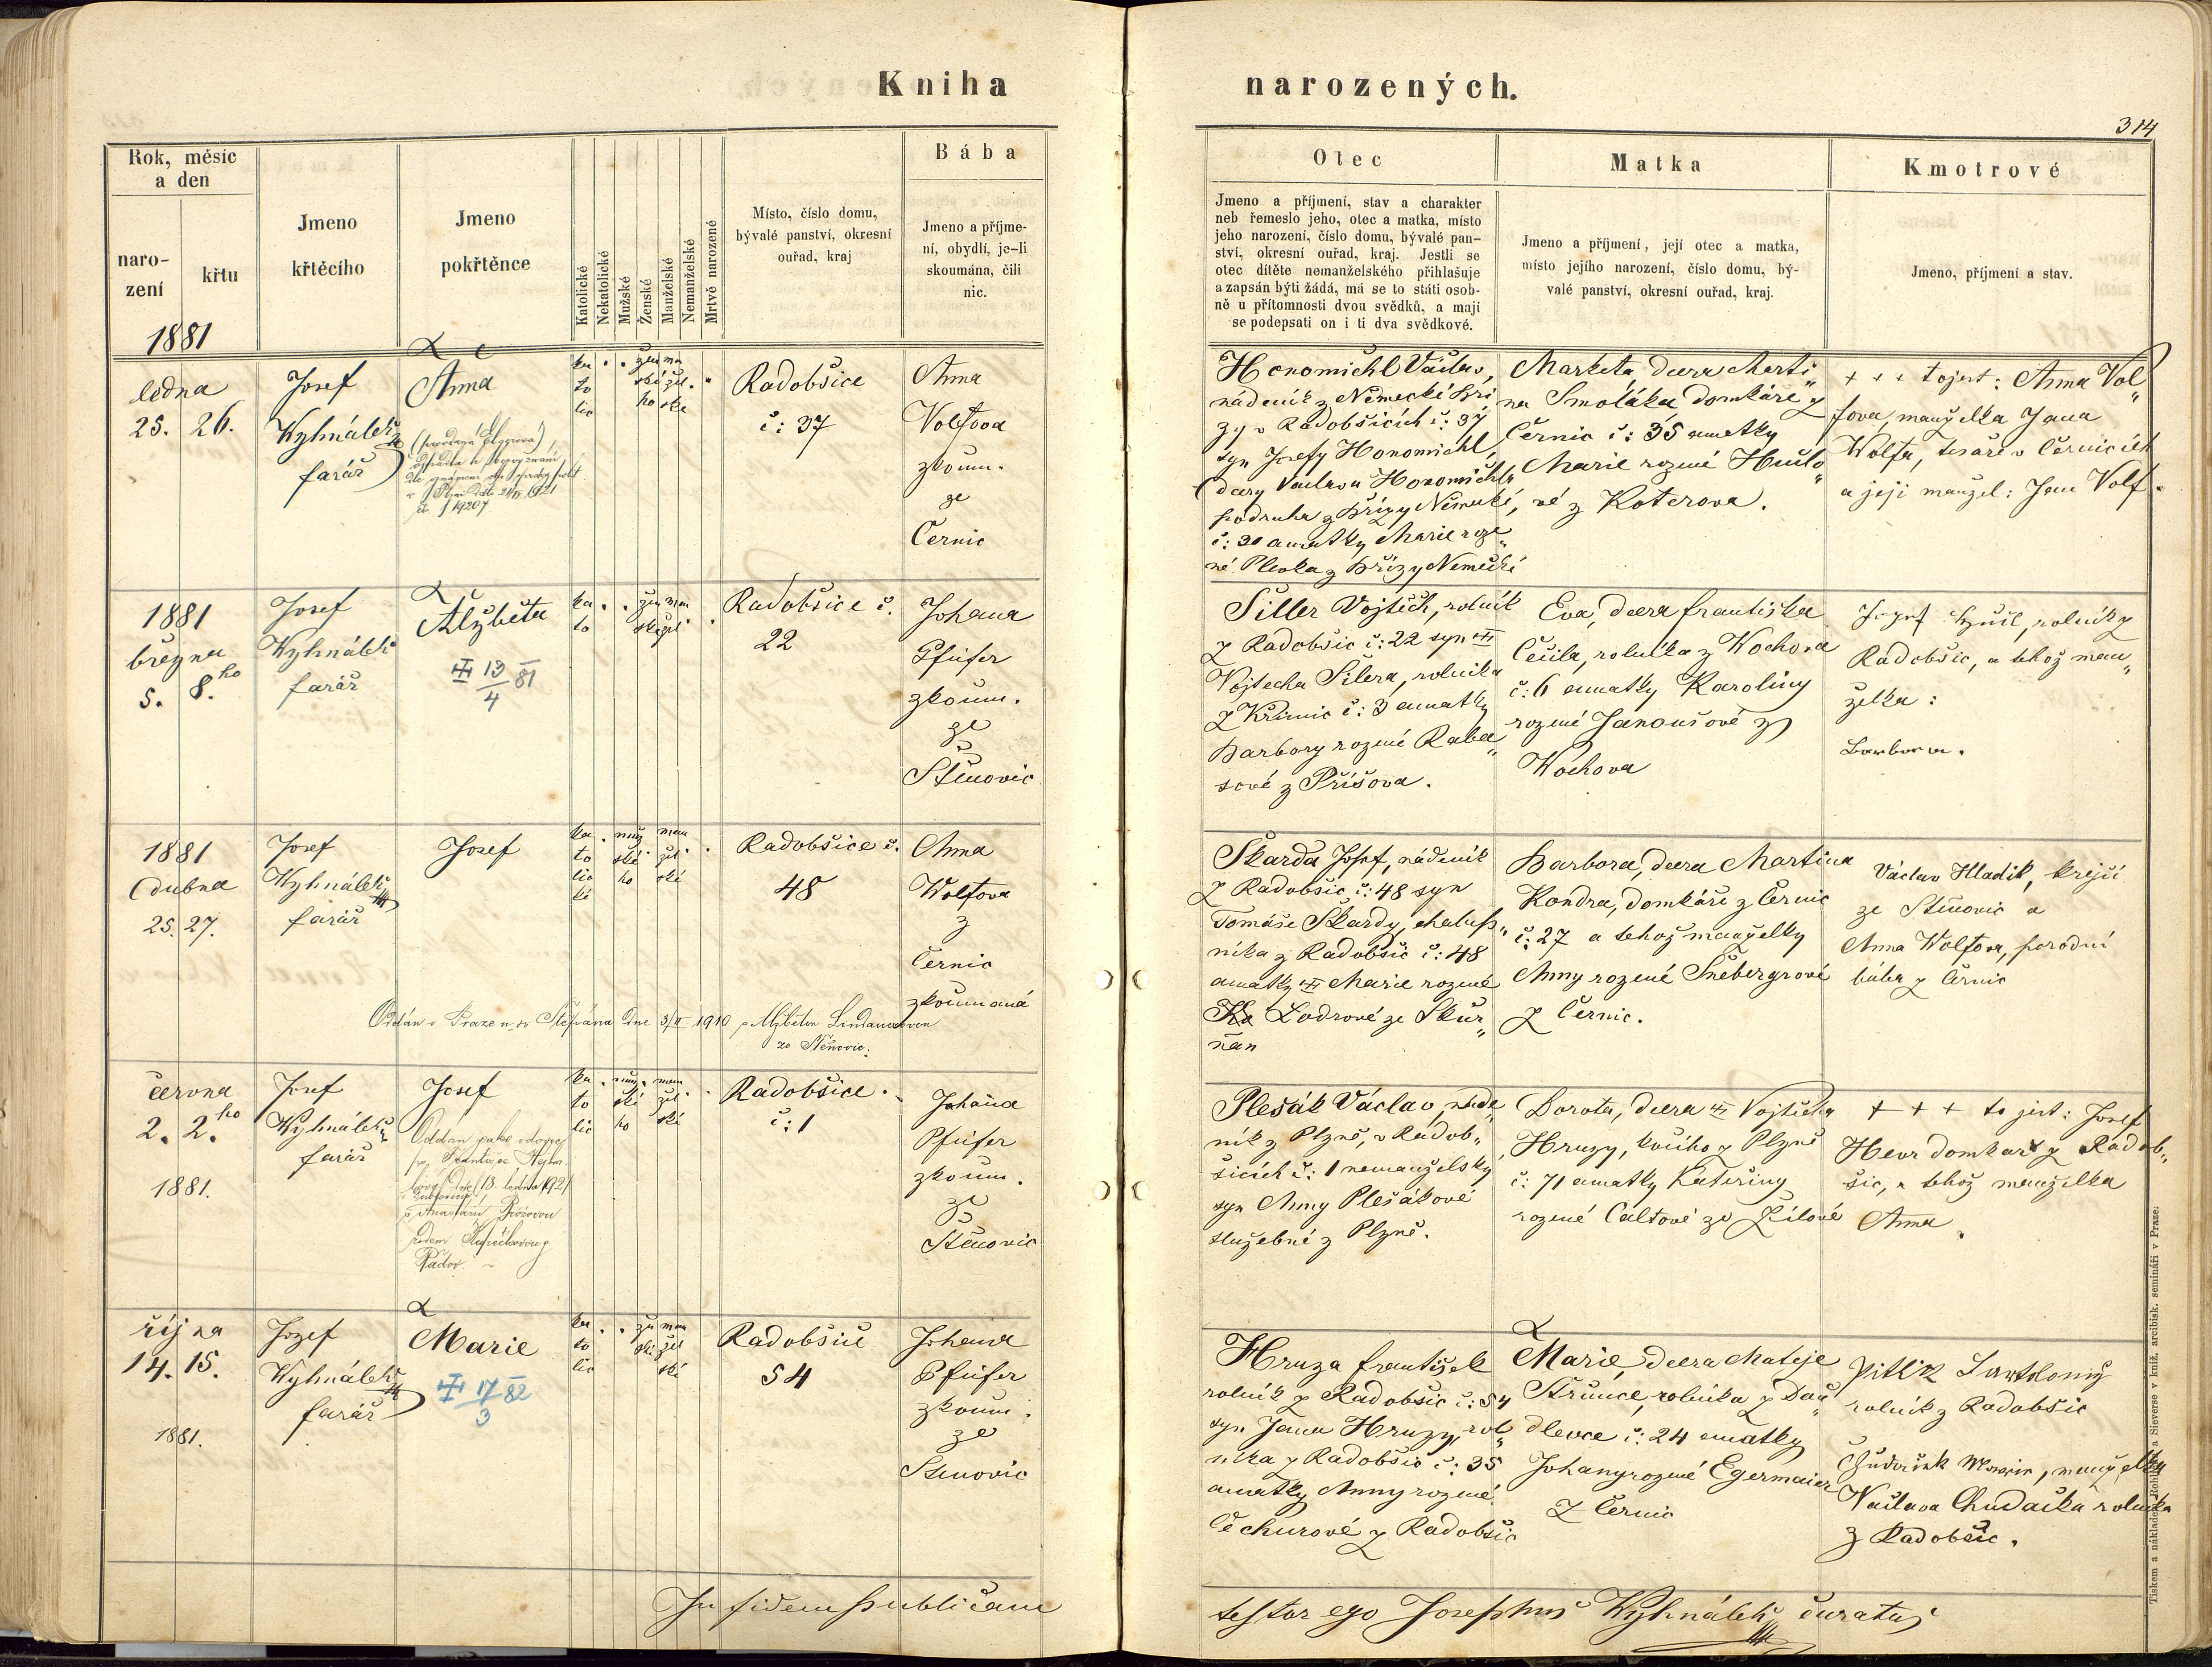 Kniha
narozených.
314
Rok, měsíc
a den
naro-
zení
křtu
Jmeno
křtěcího
Jmeno
pokřtěnce
Katolické
Nekatolické
Mužské
Ženské
Manželské
Nemanželské
Mrtvě narozené
Místo, číslo domu,
bývalé panství, okresní
ouřad, kraj
Bába
Jmeno a příjme-
ní, obydlí, je-li
skoumána, čili
nic.
Otec
Jmeno a příjmení, stav a charakter
neb řemeslo jeho, otec a matka, místo
jeho narození, číslo domu, bývalé pan-
ství, okresní ouřad, kraj. Jestli se
otec dítěte nemanželského přihlašuje
a zapsán býti žádá, má se to státi osob-
ně u přítomnosti dvou svědků, a mají
se podepsati on i ti dva svědkové.
Matka
Jmeno a příjmení, její otec a matka,
místo jejího narození, číslo domu, bý-
valé panství, okresní ouřad, kraj.
Kmotrové
Jmeno, příjmení a stav.
1881
ledna
25. 26.
Josef
Wyhnálek
farář
Anna
ka . . žen man
to ské žel . .
lic ho ské
Radobšice
č: 37
Anna
Volfova
zkoum.
ze
Černic
Honomichl Václav,
nádeník z Německé Bří
zy v Radobšicích č: 37,
syn Josefy Honomichl,
dcery Václava Honomichla
podruha z Břízy Německé,
č: 30 a matky Marie roze„
né Plevka z Břízy Německé
Marketa dcera Marti„
na Smoláka domkáře z
Černic č: 35 a matky
Marie rozené Hučlo„
vé z Koterova.
+ + + to jest: Anna Vol„
fova, manželka Jana
Wolfa, tesaře v Černicích
a její manžel: Jan Volf.
1881
března
5. 8.ho
Josef
Wyhnálek
farář
Alžběta
13/4 81
ka . . žen man
to ské žel .
Radobšice č.
22
Johana
Pfeifer
zkoum.
ze
Štěnovic
Šiller Vojtěch, rolník
z Radobšic č: 22 syn
Vojtěcha Šilera, rolníka
z Křimic č: 3 a matky
Barbory rozené Raba„
sové z Příšova.
Eva, dcera Františka
Čečila, rolníka z Wochova
č: 6 a matky Karolíny
rozené Janoušové z
Wochova
Radobšic, a tehož man„
želka:
Barbora.
1881
dubna
25. 27.
Josef
Wyhnálek
farář
Josef
ka . muž man .
to ské . žel .
lic ho ské
ké
Radobšice č.
48
Anna
Wolfova
z
Černic
zkoumaná
Oddán v Praze u sv Štěpána dne 3/II 1910
ze Štěnovic.
Škarda Josef, nádeník
z Radobšic č: 48 syn
Tomáše Škardy, chalup„
níka z Radobšic č: 48
a matky Marie rozené
Lodrové ze Škur„
ňan
Barbora, dcera Martina
Kondra, domkáře z Černic
č: 27 a tehož manželky
Anny rozené Šnebergrové
z Černic.
Václav Hladík, krejčí
ze Štěnovic a
Anna Wolfova, porodní
bába z Černic
června
2. 2.ho
1881.
Josef
Wyhnálek
farář
Josef
ka . muž . man
to ské žel .
lic ho ské
Radobšice .
č: 1
Johana
Pfeifer
zkoum.
ze
Štěnovic
Plešák Václav, náde„
ník z Plzně, v Radob„
šicích č: 1 nemanželský
syn Anny Plešákové
služebné z Plzně.
Dorota, dcera Vojtěcha
Hruzy, kočího z Plzně
č: 71 a matky Kateřiny
rozené Caltové ze Žilové
+ + + to jest: Josef
Hevr domkař z Radob„
šic, a tehož manželka
Anna.
října
14. 15.
1881.
Jozef
Wyhnálek
farář
Marie
17/3 82
ka . . žen man
to ské žel
lic ské
Radobšice
54
Johana
Pfeifer
zkoum.
ze
Štenovic
Hruza František
rolník z Radobšic č: 54
syn Jana Hruzy, rol„
níka z Radobšic č: 35
a matky Anny rozené
Čechurové z Radobšic
Marie dcera Matěje
Strunce, rolníka z Dou„
dlevce č: 24 a matky
Johany rozené Egermaier
z Černic
Pitlik Bartoloměj
rolník z Radobšic
Chudáček Marie, manželka
Václava Chudáčka rolníka
z Radobšic.
In fidem publicam
testor ego Josephus Wyhnálek curatus
Tiskem a nákladem Rohlíčka a Sieverse v kníž. arcibisk. semináři v Praze: